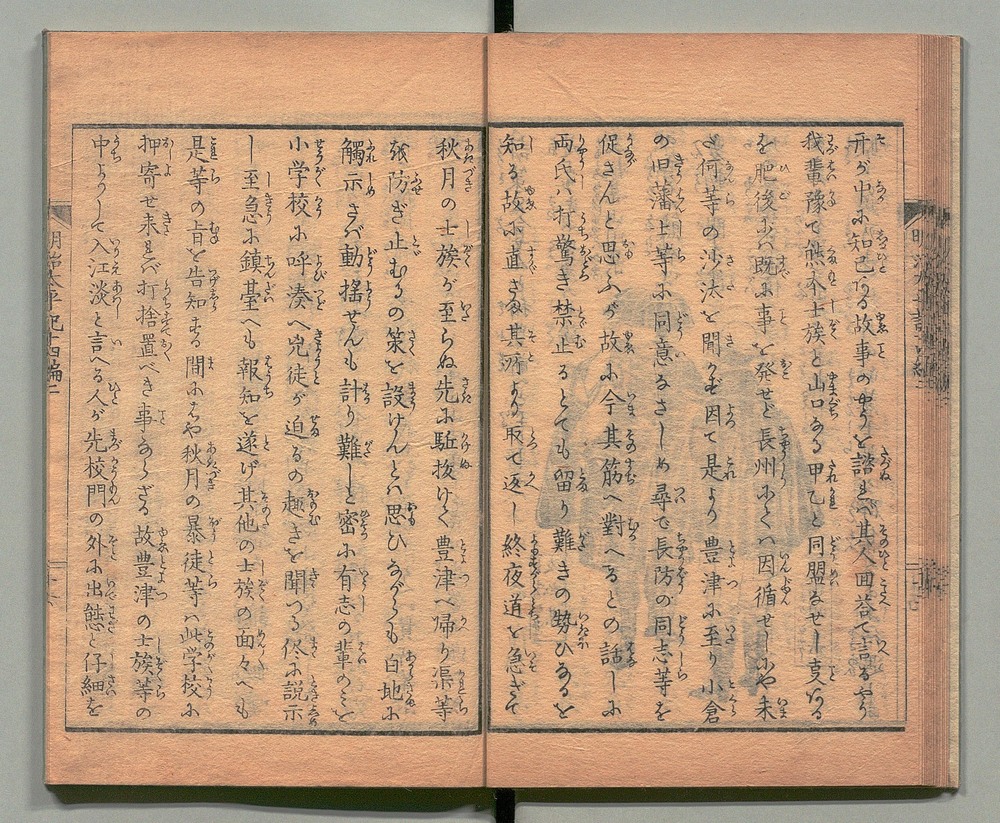 开が中に知己なる故事のやうを諮れバ其人回答て言るやう
我輩豫て熊本士族と山口なる甲乙と同盟なせし支なる
を肥後にハ既に事を発せど長州にてハ因循せしにや未
だ何等の沙汰を聞かず因て是より豊津に至り小倉
の旧藩士等に同意なさしめ尋で長防の同志等を
促さんと思ふが故に今其筋へ對へるとの話しに
両氏ハ打驚き禁止るとても留り難きの勢ひなるを
知る故に直さま其所より取て返し終夜道を急ぎて
秋月の士族が至らぬ先に駈抜けて豊津へ帰り渠等
を防ぎ止むるの策を設けんとハ思ひながらも白地に
觸示さバ動揺せんも計り難しと密に有志の輩のミを
小学校に呼湊へ兇徒が迫るの趣きを聞つる侭に説示
し至急に鎮臺へも報知を遂げ其他の士族の面々へも
是等の旨を告知する間にはや秋月の暴徒等ハ此学校に
押寄せ来れバ打捨置べき事ならざる故豊津の士族等の
中よりして入江淡と言へる人が先校門の外に出態と仔細を
明治太平記十四編一